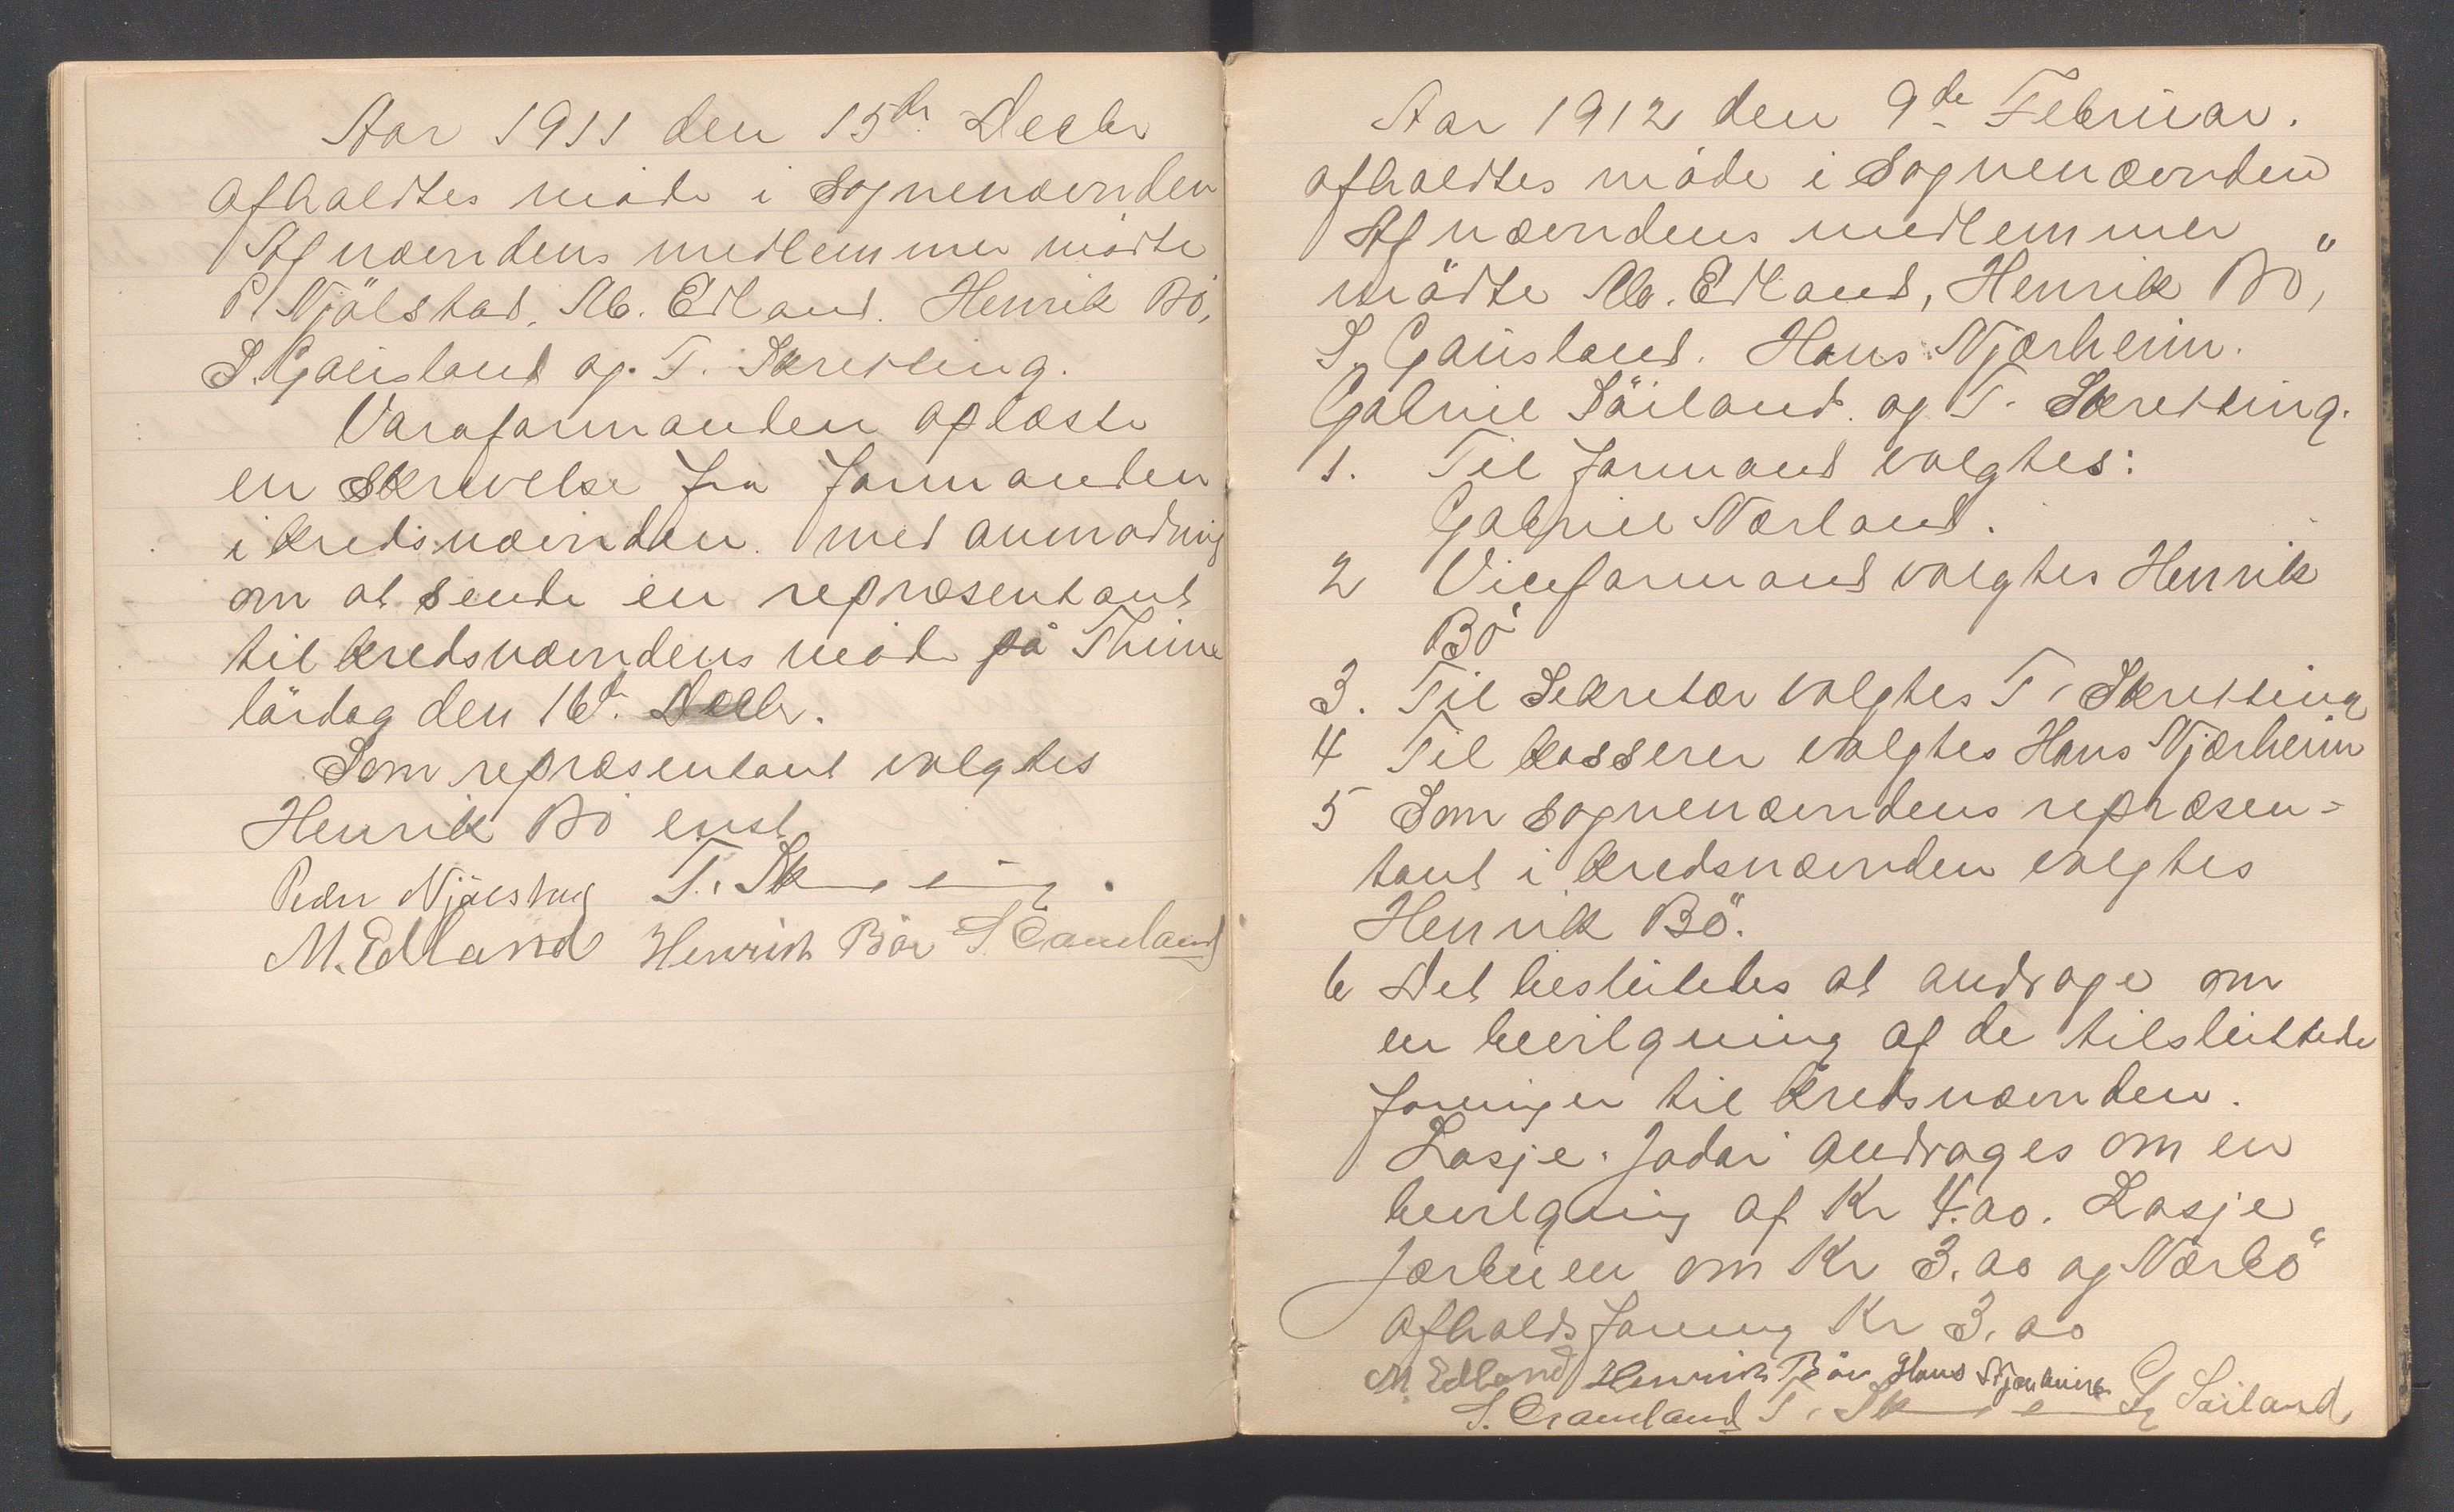 Aar 1911 den 15de Decbr
afholdtes möde i Sognenævnden
Af nævndens medlemmer mödte
P. Njölstad, M. Edland. Henrik Bö,
S. Gausland og T. Skretting.
Varaformanden oplæste
en Skrivelse fra formanden
i kredsnævnden med anmodning
om at sende en repræsentant
til kredsnævndens möde på Thime
lördag den 16de Decbr.
Som repræsentant valgtes
Henrik Bö enst.
Peder Njölstad T. Skretting.
M. Edland Henrich Böe S. Gausland
Aar 1912 den 9de Februar.
afholdtes möde i Sognenævnden
Af nævndens medlemmer
mödte M. Edland, Henrik Bö,
S. Gausland. Hans Njærheim.
Gabriel Söiland og T. Skretting.
1. Til formand valgtes:
Gabriel Nærland.
2 Viceformand valgtes Henrik
Bö
3. Til Sekretær valgtes T. Skretting
4 Til kasserer valgtes Hans Njærheim
5 Som Sognenævndens repræsen-
tant i kredsnævnden valgtes
Henrik Bö.
6 Det besluttedes at andrage om
en bevilgning af de tilsluttede
foreninger til kredsnævnden.
Losje. Jadar andrages om en
bevilgning af Kr 4.00. Losje
Jærbuen om Kr 3.00 og Nærbö
Afholdsforening Kr 3.00
M. Edland Henrich Böe Hans Njærheim G Söiland
S. Gausland T. Skretting